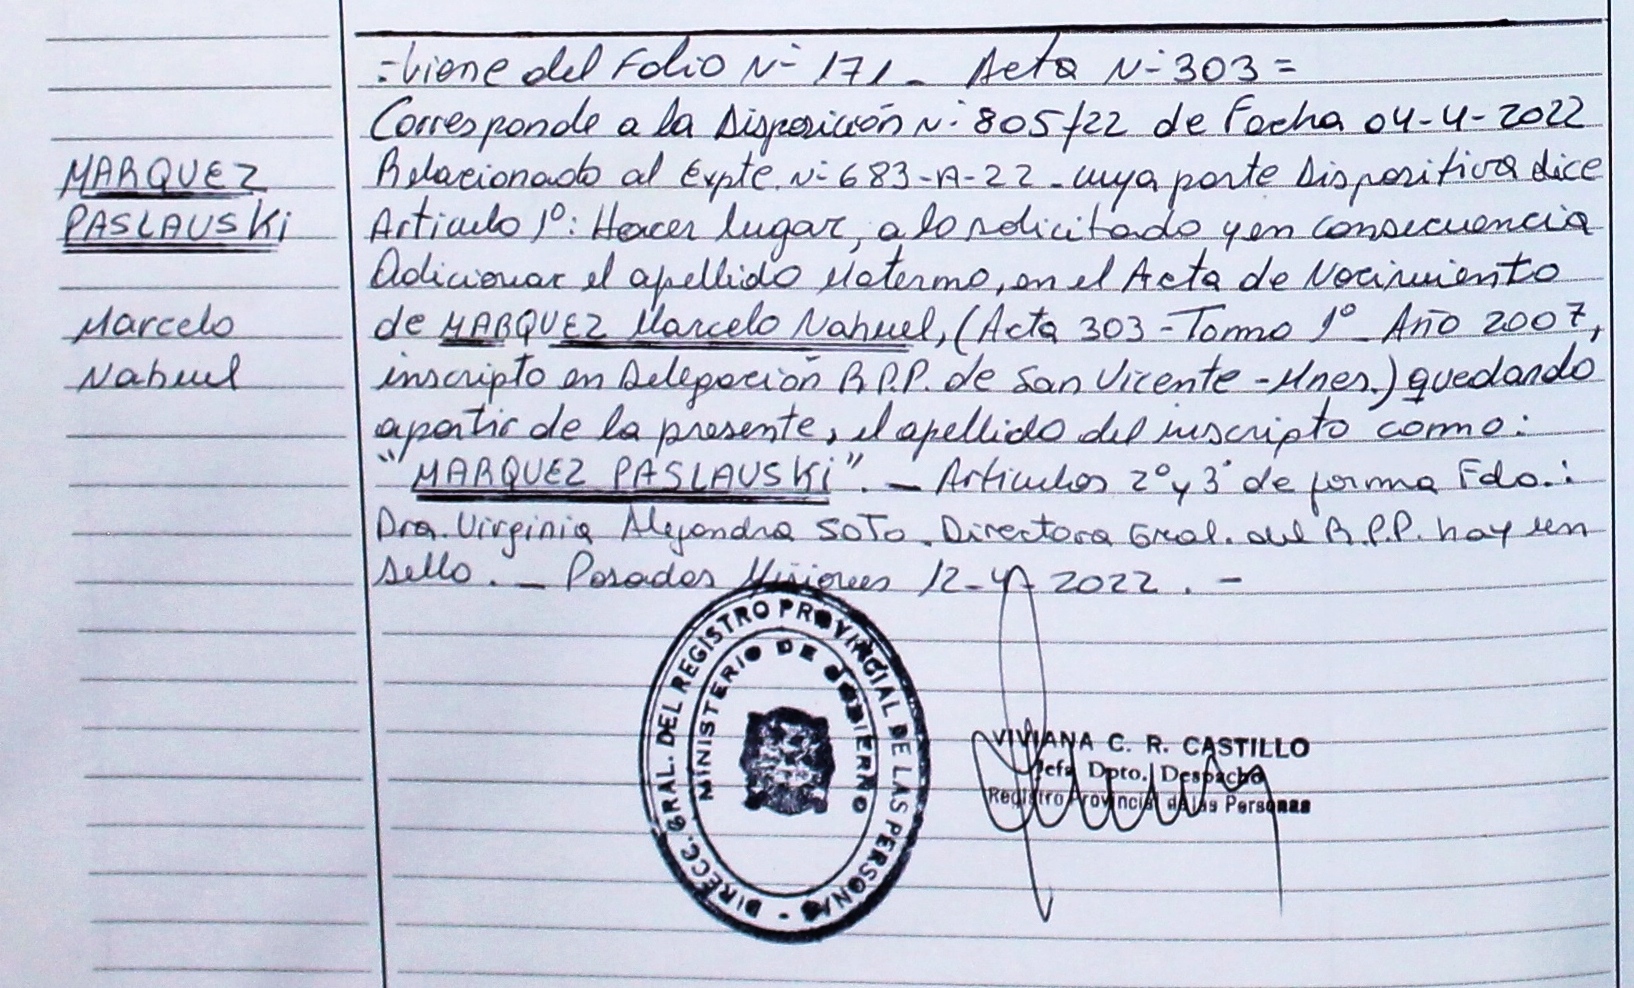 =Viene del Folio Nº 171_ Acta Nº 303=
Corresponde a la Disposición Nº 805/22 de Fecha 04-4-2022
MARQUEZ
PASLAUSKi
Marcelo
Nahuel
Relacionado al Expte. Nº 683-A-22_ cuya parte Dispositiva dice
Articulo 1º: Hacer lugar, a lo solicitado y en consecuencia
Adicionar el apellido Materno, en el Acta de Nacimiento
de MARQUEZ Marcelo Nahuel, (Acta 303 - Tomo 1º_ Año 2007,
inscripto en Delegación R.P.P. de San Vicente - Mnes.) quedando
a partir de la presente, el apellido del inscripto como:
"MARQUEZ PASLAUSKi". _ Articulos 2º y 3º de forma Fdo.:
Dra. Virginia Alejandra SOTO. Directora Gral. del R.P.P. hay un
sello. _ Posadas Misiones 12-4-2022. -
DIRECC. GRAL. DEL REGISTRO PROVINCIAL DE LAS PERSONAS -
MINISTERIO DE GOBIERNO
VIVIANA C. R. CASTILLO
Jefa Dpto. Despacho
Registro Provincial de las Personas